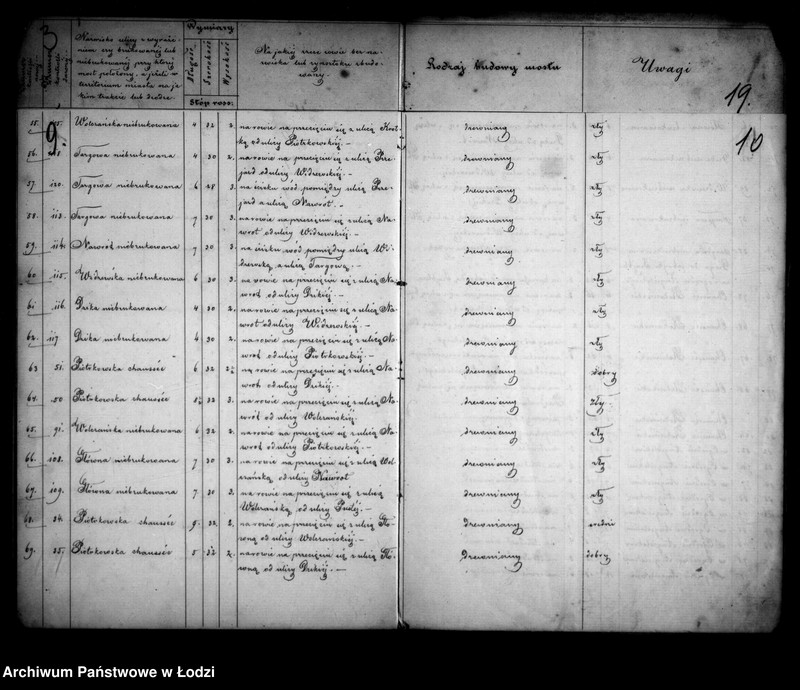 3
Nazwisko ulicy z wyraże-
niem czy brukowanej lub
niebrukowanej przy której
most położony, a jeżeli w
territorium miasta na ja-
kim trakcie lub drodze.
Wymiary
Długość
Szerokość
Wysokość
Stóp ross:
Na jakiej rzece rowie stru-
mieniu lub rynsztoku zbudo-
wany.
Rodzaj budowy mostu
Uwagi
19.
10
9.
niebrukowana 4 32 2. na rowie na przecięciu się z ulicą
od ulicy Piotrkowskiej. — drewniany zły
56. Targowa niebrukowana 4 30 2. na rowie na przecięciu się z ulicą Prze-
jazd od ulicy Widzewskiej. — drewniany zły
57. 120. Targowa niebrukowana 6 28 3. na ścieku wód pomiędzy ulicą Prze-
jazd a ulicą Nawrot. — drewniany zły
58. 113. Targowa niebrukowana 7 30 3. na rowie na przecięciu się z ulicą Na-
wrot od ulicy Widzewskiej. — drewniany zły
59. 114. Nawrot niebrukowana 7 30 3. na ścieku wód pomiędzy ulicą Wi-
dzewską a ulicą Targową. — drewniany zły
60. 115. Widzewska niebrukowana 6 30 3. na rowie na przecięciu się z ulicą Na-
wrot od ulicy Dzikiej. — drewniany zły
61. 116. Dzika niebrukowana 4 30 2. na rowie na przecięciu się z ulicą Na-
wrot od ulicy Widzewskiej. — drewniany zły
62. 117 Dzika niebrukowana 4 30 2. na rowie na przecięciu się z ulicą Na-
wrot od ulicy Piotrkowskiej. — drewniany zły
63 51. Piotrkowska chaussée 6 32 na rowie na przecięciu się z ulicą Na-
wrot od ulicy Dzikiej. — drewniany dobry
64. 50 Piotrkowska chaussée 32 3. na rowie na przecięciu się z ulicą Na-
wrot od ulicy Wólczańskiej. drewniany zły.
65. 91. Wólczańska niebrukowana 6 32 2. na rowie na przecięciu się z ulicą Na-
wrot od ulicy Piotrkowskiej. — drewniany zły
66. 108. Główna niebrukowana 7 30 3. na rowie na przecięciu się z ulicą
od ulicy Nawrot drewniany zły
67. 109. Główna niebrukowana 7 31 3. na rowie na przecięciu się z ulicą
Wólczańską, od ulicy — drewniany zły
68. 34. Piotrkowska chaussée 9. na rowie na przecięciu się z ulicą Głó-
wną od ulicy Wólczańskiej. — drewniany średni
69. 35. Piotrkowska chaussée 5 32 2. na rowie na przecięciu się z ulicą Głó-
wną od ulicy Dzikiej. — drewniany dobry
Archiwum Państwowe w Łodzi